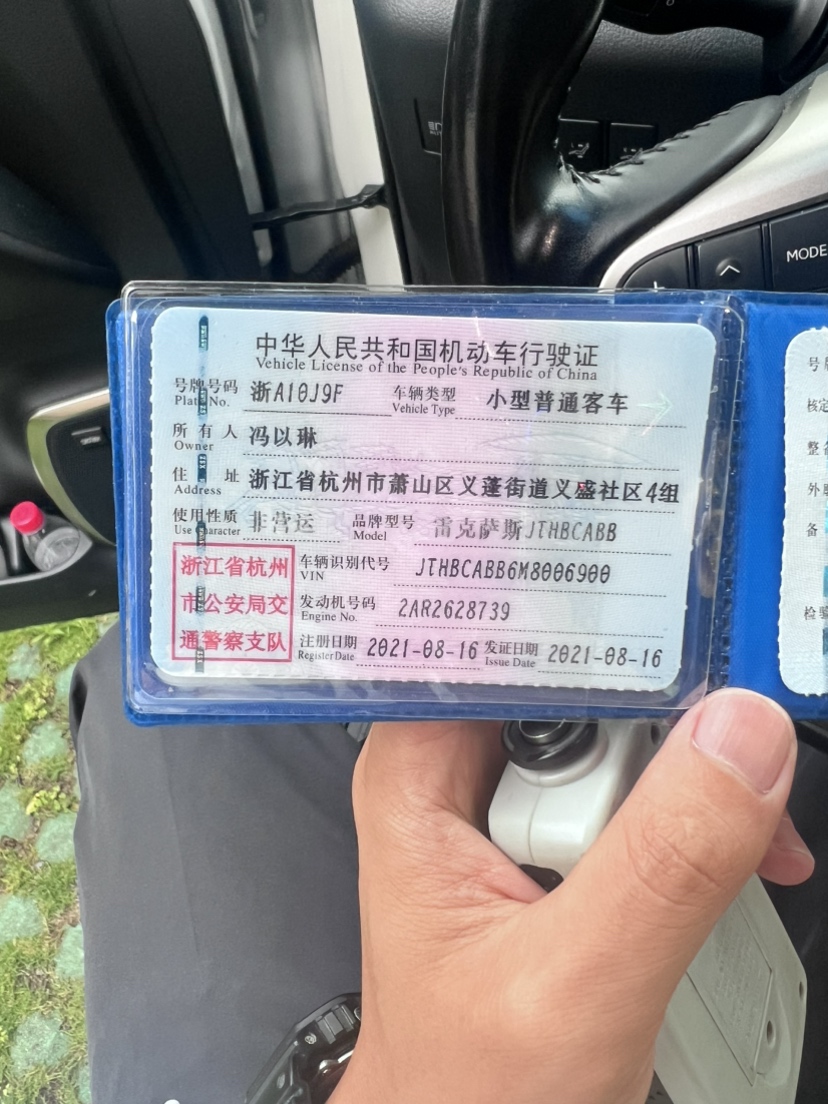 MODE
中华人民共和国机动车行驶证
Vehicle License of the People's Republic of China
号牌号码 浙A10J9F 车辆类型 小型普通客车
Plate No. Vehicle Type
所有人 冯以琳
Owner
住址 浙江省杭州市萧山区义蓬街道义盛社区4组
Address
使用性质 非营运 品牌型号 雷克萨斯JTHBCABB
Use Character Model
浙江省杭州
市公安局交
通警察支队
车辆识别代号 JTHBCABB6M8006900
VIN
发动机号码 2AR2628739
Engine No.
注册日期 2021-08-16 发证日期 2021-08-16
Register Date Issue Date
号
核定
整备
外
备
检验